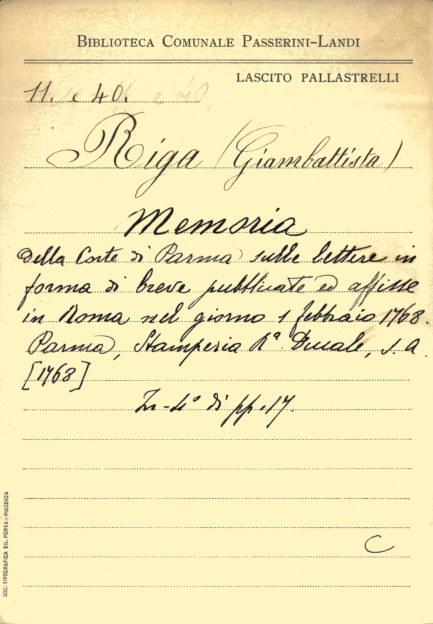 BIBLIOTECA COMUNALE PASSERINI-LANDI
LASCITO PALLASTRELLI
11. c 40.
Riga (Giambattista)
Memoria
della Corte di Parma sulle lettere in
forma di breve pubblicate ed affisse
in Roma nel giorno 1 febbraio 1768.
Parma, Stamperia Rª Ducale, s. a.
[1768]
In-4° di pp. 17.
C
SOC. TIPOGRAFICA ED. PORTA-PIACENZA